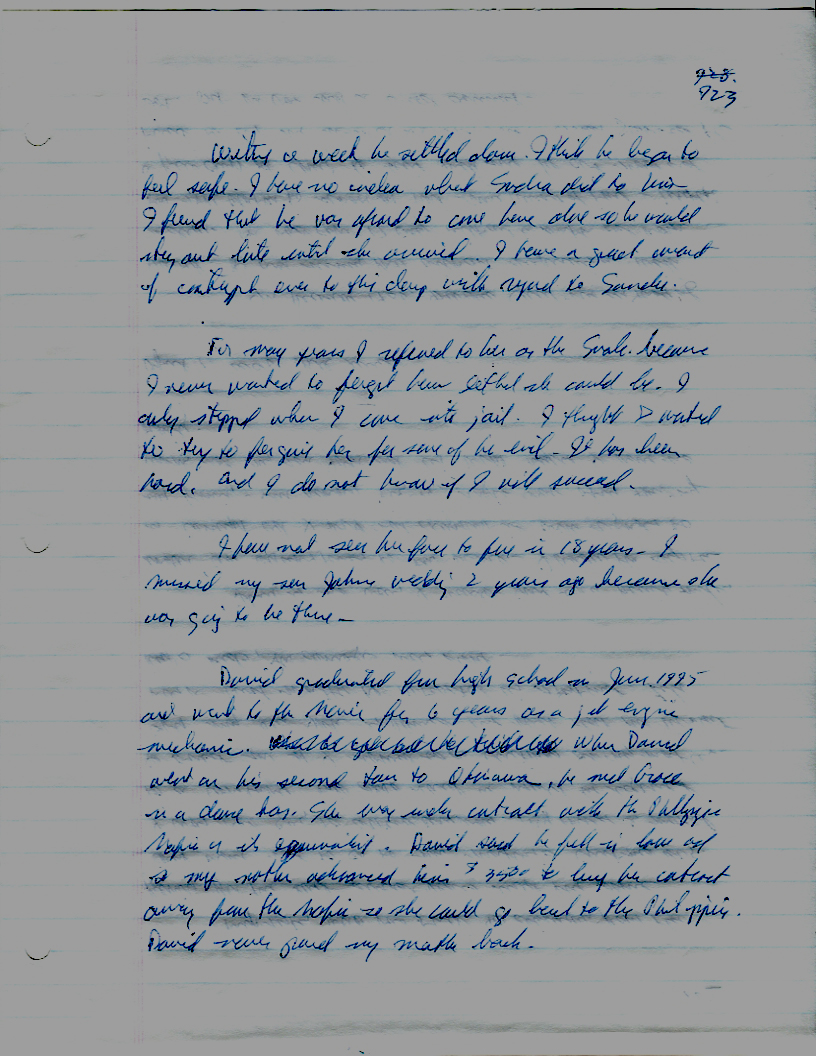 923
Within a week he settled down. I think he began to
feel safe. I have no idea what Sandra did to him
I found that he was afraid to come home alone so he would
stay out late until she arrived. I have a great amount
of contempt even to this day with regard to Sandra.
For many years I referred to her as the Snake because
I never wanted to forget how lethal she could be. I
only stopped when I came into jail. I thought I wanted
to try to forgive her for some of her evil. It has been
hard, and I do not know if I will succeed.
I have not seen her face to face in 18 years - I
missed my son Johns wedding 2 years ago because she
was going to be there -
David graduated from high school in June 1995
and went to the for 6 years as a jet engine
mechanic. When David
went on his second tour to Okinawa, he met Grace
in a dance bar. She was under contract with the
Mafia or its equivalent. David said he fell in love and
so my mother advanced him $3500 to buy her contract
away from the Mafia so she could go back to the
David never paid my mother back.